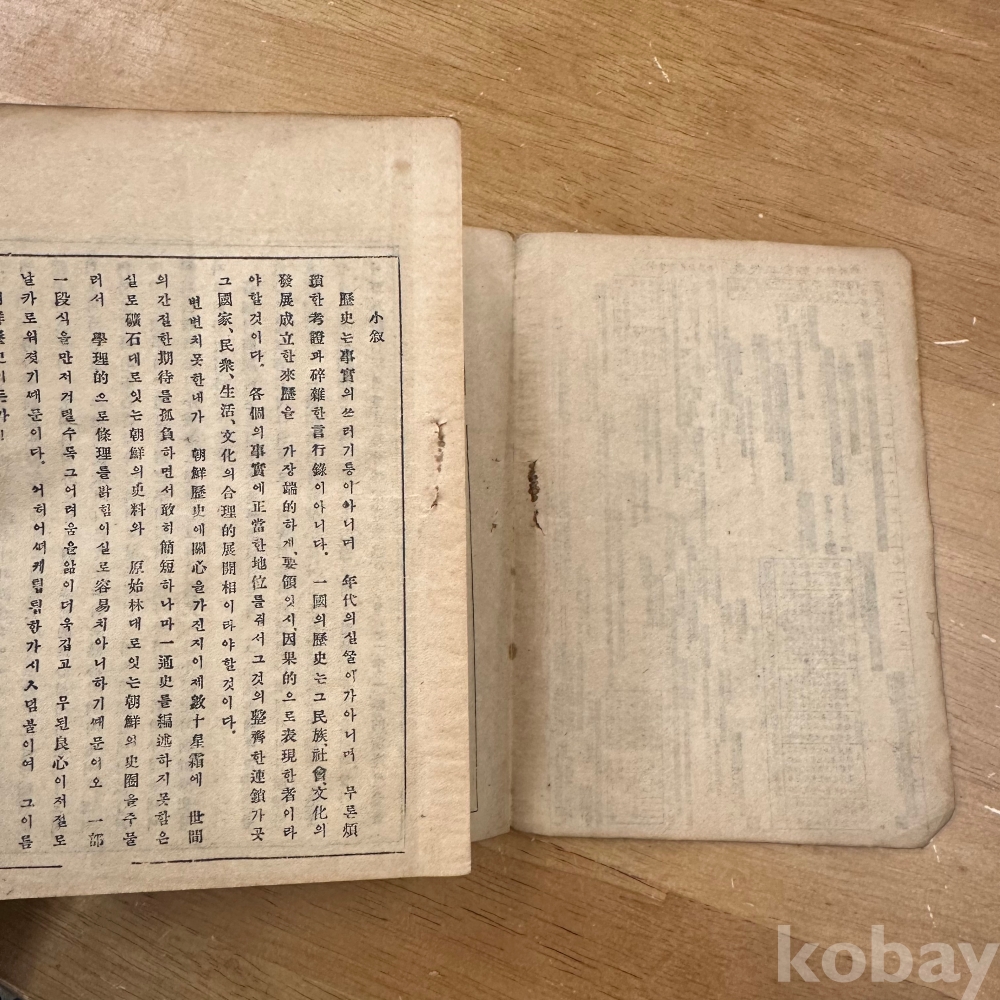 小叙
歷史는事實의쓰러기통이아니며 年代의실꿸이가아니며 무론煩
瑣한考證과碎雜한言行錄이아니다. 一國의歷史는그民族、社會、文化의
發展成立한來歷을 가장端的하게、要領잇시、因果的으로表現한者이라
야할것이다. 各個의事實에正當한地位를줘서그것의整齊한連鎖가곳
그國家、民衆、生活、文化의合理的展開相이라야할것이다.
변변치못한내가 朝鮮歷史에關心을가진지이제數十星霜에 世間
의간절한期待를孤負하면서敢히簡短하나마一通史를編述하지못함은
실로礦石대로잇는朝鮮의史料와 原始林대로잇는朝鮮의史圈을주물
러서 學理的으로條理를밝힘이실로容易치아니하기때문이오 一部
一段식을만저거릴수록그어려움을앎이더욱깁고 무된良心이저절로
날카로워젓기때문이다. 어허어떠케팁팁한가시人덤불이여 그이름
kobay